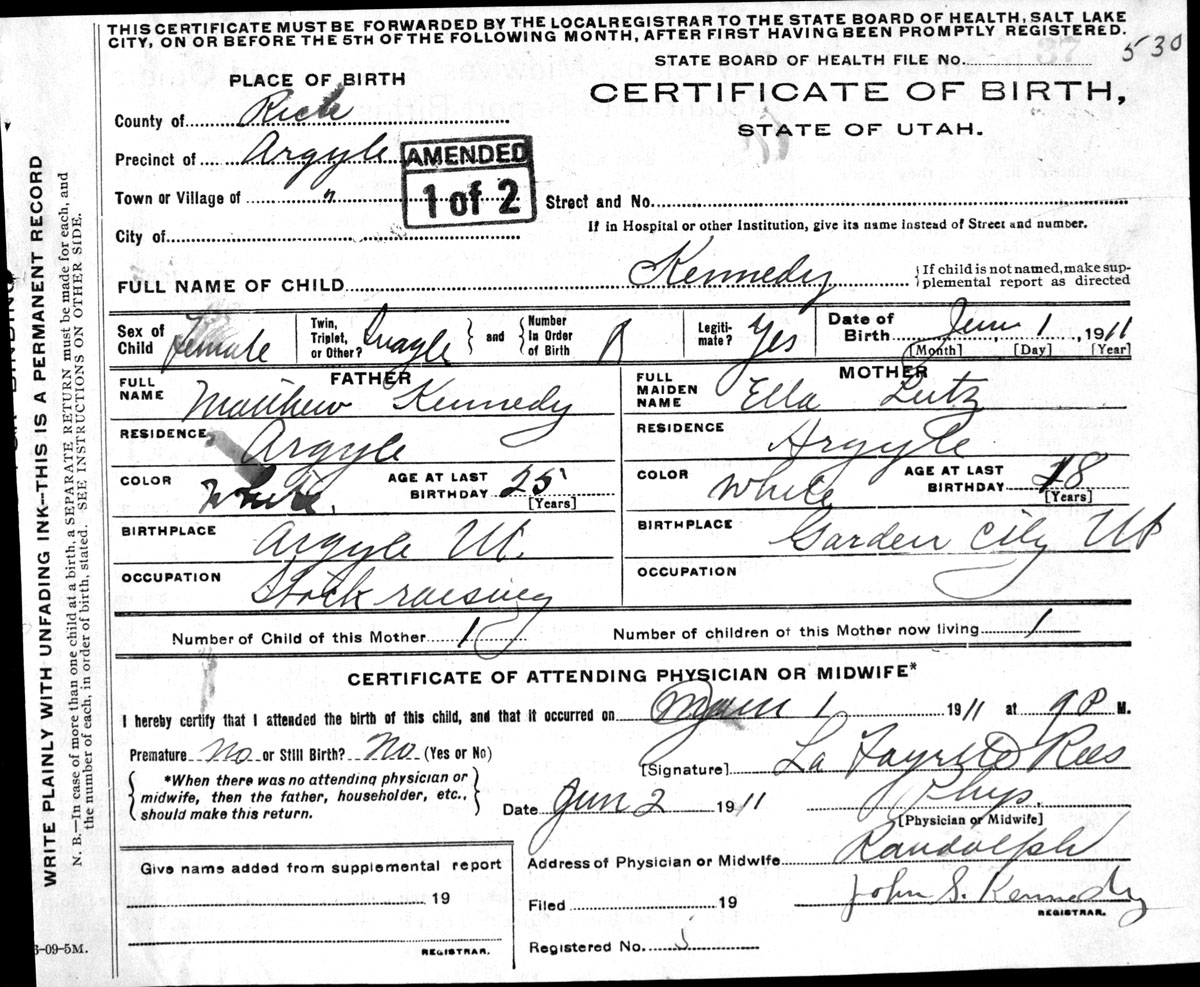 THIS CERTIFICATE MUST BE FORWARDED BY THE LOCAL REGISTRAR TO THE STATE BOARD OF HEALTH, SALT LAKE
CITY, ON OR BEFORE THE 5TH OF THE FOLLOWING MONTH, AFTER FIRST HAVING BEEN PROMPTLY REGISTERED.
530
STATE BOARD OF HEALTH FILE No.
PLACE OF BIRTH
CERTIFICATE OF BIRTH,
STATE OF UTAH.
County of Rich
Precinct of Argyle
AMENDED
1 of 2
Town or Village of "
Street and No.
City of
If in Hospital or other Institution, give its name instead of Street and number.
FULL NAME OF CHILD Kennedy
{If child is not named, make sup-
plemental report as directed
Sex of Child female
Twin, Triplet, or Other? } and { Number In Order of Birth
Legiti-mate? Yes
Date of Birth June 1, 1911
[Month] [Day] [Year]
FATHER
FULL NAME Matthew Kennedy
RESIDENCE Argyle
COLOR White. AGE AT LAST BIRTHDAY 25 [Years]
BIRTHPLACE Argyle Ut.
OCCUPATION Stock raising
MOTHER
FULL MAIDEN NAME Ella Lutz
RESIDENCE Argyle
COLOR White AGE AT LAST BIRTHDAY 18 [Years]
BIRTHPLACE Garden City Ut
OCCUPATION
Number of Child of this Mother 1 Number of children of this Mother now living 1
CERTIFICATE OF ATTENDING PHYSICIAN OR MIDWIFE*
I hereby certify that I attended the birth of this child, and that it occurred on June 1 1911 at 9 P M.
Premature No or Still Birth? No. (Yes or No)
[Signature] La Fayette Rees
{ *When there was no attending physician or
midwife, then the father, householder, etc.,
should make this return. }
Date Jun 2 1911 Phys.
[Physician or Midwife]
Address of Physician or Midwife Randolph
Give name added from supplemental report
19
REGISTRAR.
Filed 19 John S. Kennedy
REGISTRAR.
Registered No.
6-09-5M.
WRITE PLAINLY WITH UNFADING INK—THIS IS A PERMANENT RECORD
N. B.—In case of more than one child at a birth, a SEPARATE RETURN must be made for each, and
the number of each, in order of birth, stated. SEE INSTRUCTIONS ON OTHER SIDE.